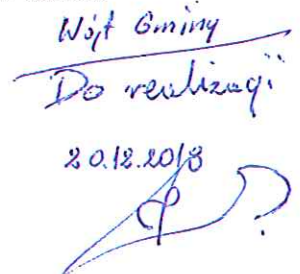 Wójt Gminy
Do realizacji
20.12.2018